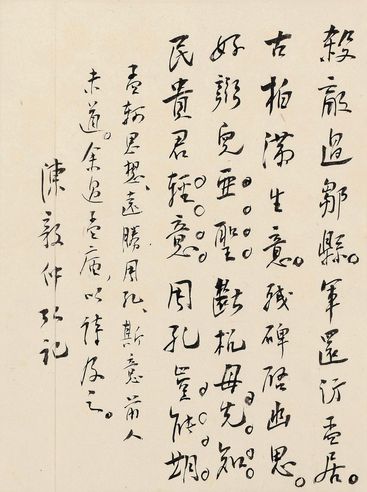 殺敵過鄒縣。軍還訪孟居。
古柏滿生意。殘碑啓幽思。
好辯兒亞聖。斷机母先知。
民貴君輕意。周孔豈能期。
孟軻思想、遠勝周孔、斯意前人
未道。余過孟庙,以詩及之。
陳毅仲弘記